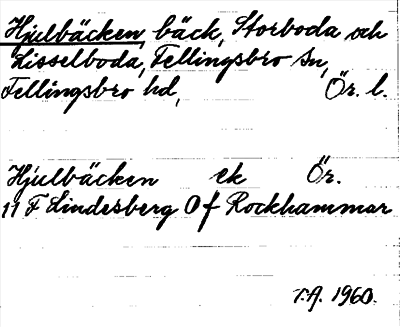 Hjulbäcken, bäck, Storboda och
Lisselboda, Fellingsbro sn,
Fellingsbro hd, Ör. l.
Hjulbäcken ek Ör.
11 F Lindesberg Of Rockhammar
T.A. 1960.